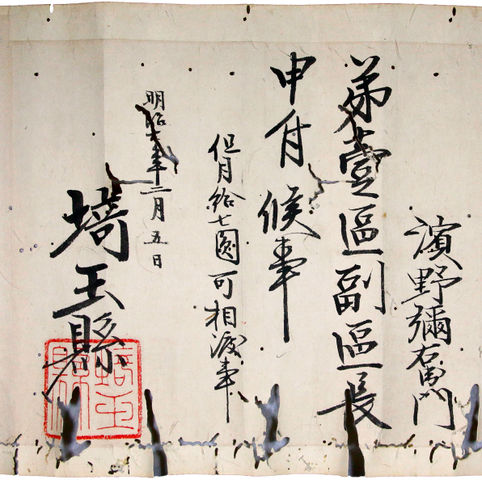 濱野彌右衛門
第壹區副區長
申付候事
但月給七圓可相渡事
明治七年二月五日
埼玉縣